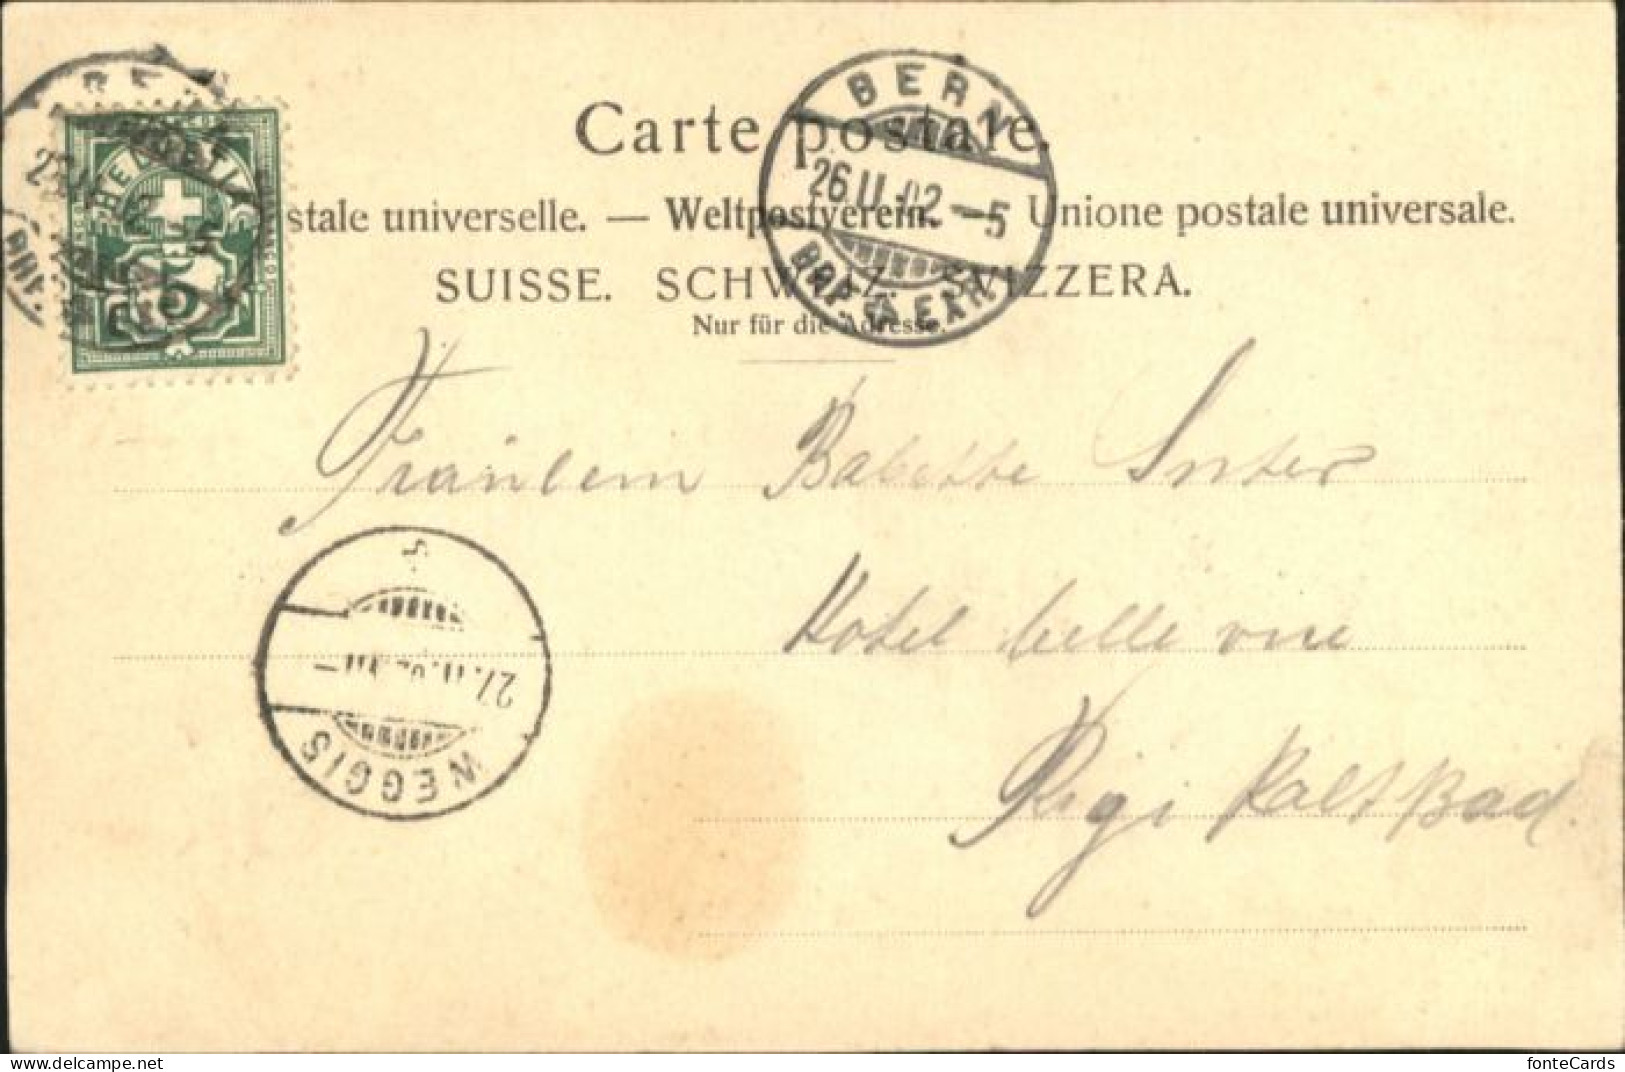 Carte postale.
stale universelle. — Weltpostverein. — Unione postale universale.
SUISSE. SCHWEIZ. SVIZZERA.
Nur für die Adresse.
HELVETIA
5
BERN
26.II.02–5
BRF. EXP.
Fräulein Babette Suter
Hotel belle vue
Rigi Kaltbad.
WEGGIS
27.II.02.VII–
www.delcampe.net
fonteCards